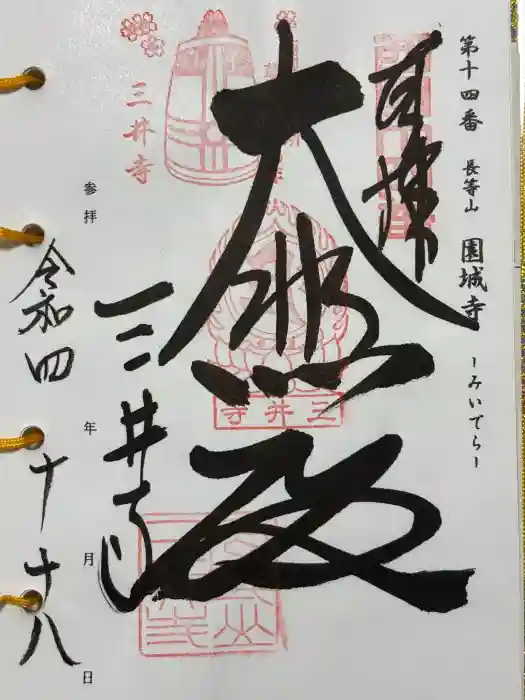 第十四番 長等山 園城寺 ーみいでらー
奉拝
大悲殿
三井寺
三井寺
三井寺
参拝
令和四年十月十八日